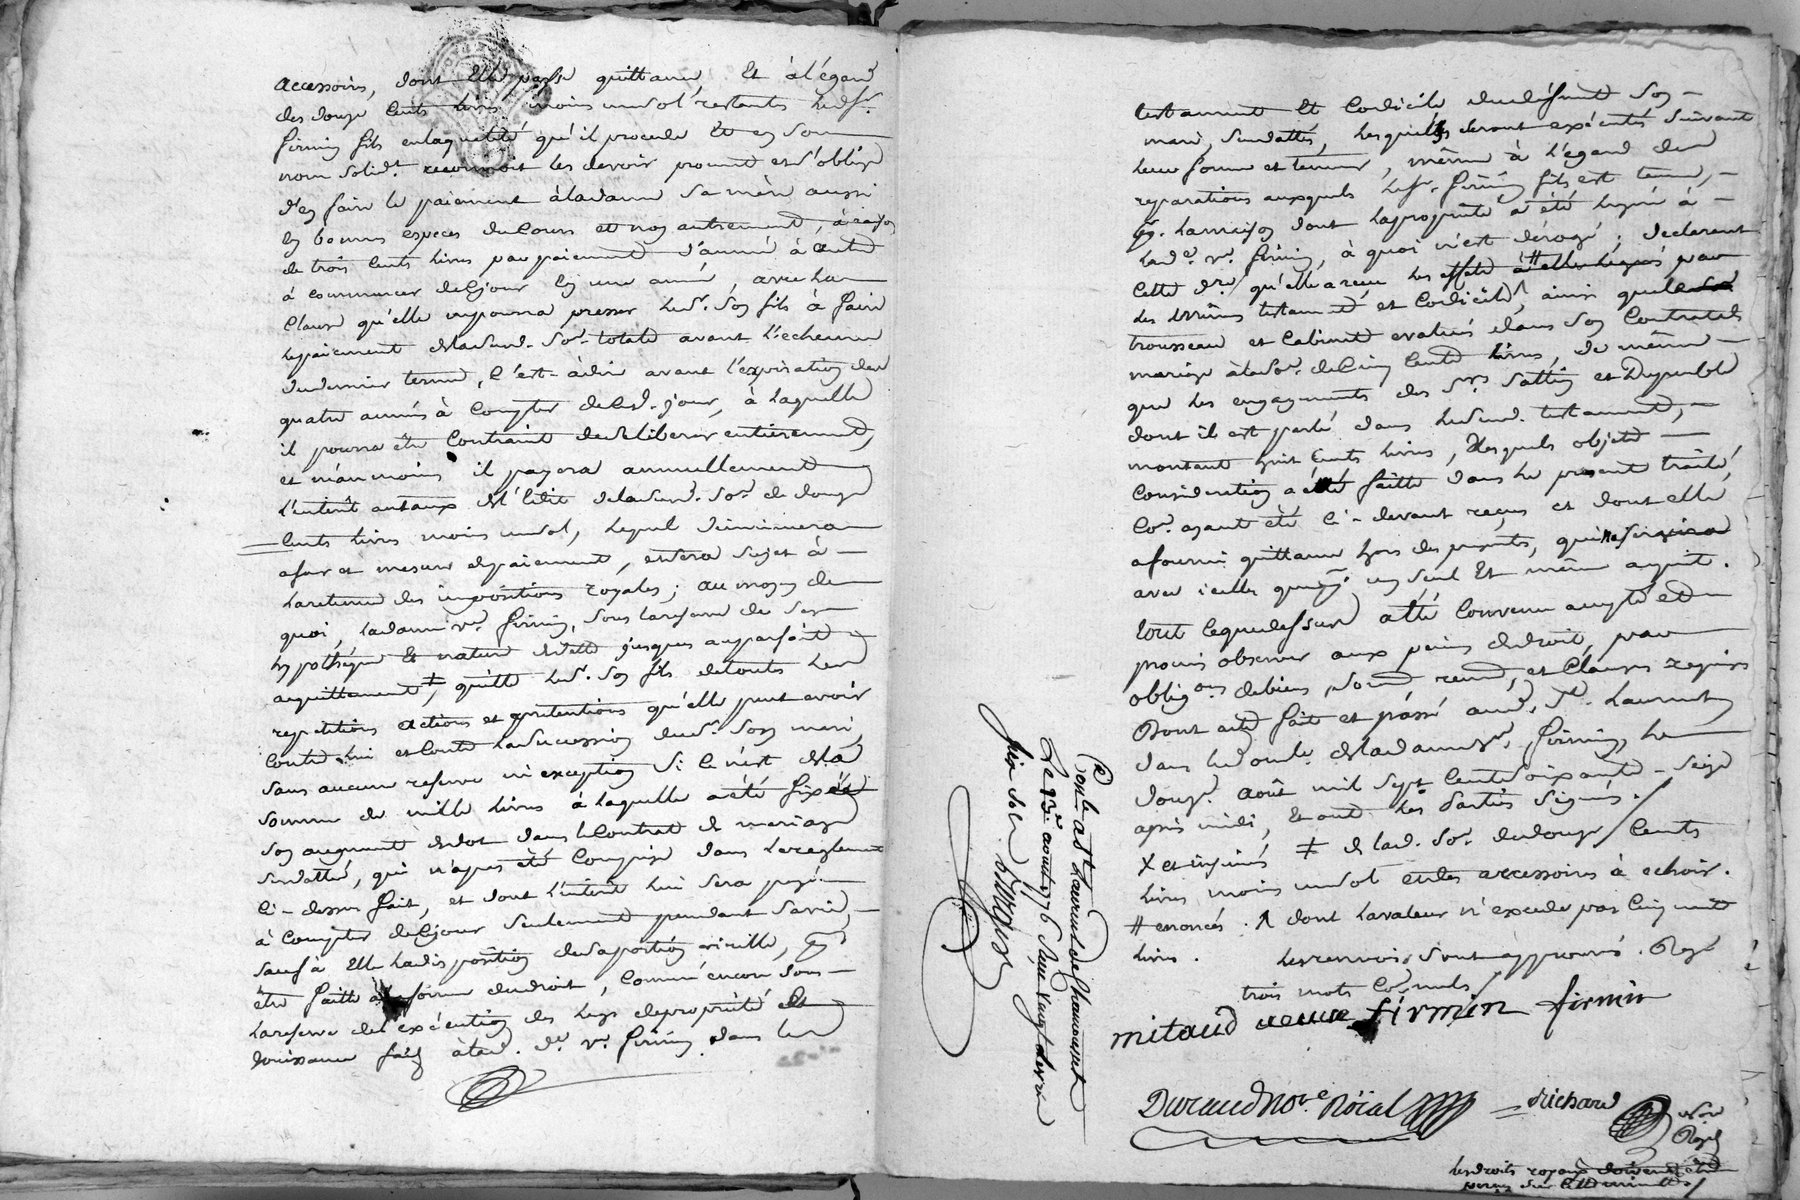 accessoirs, dont Elle passe quittance, Et à l'égard
des douze Cents livres moins un sol restants led. sr.
firmin fils en la qualité qu'il procede Et en son
nom solid.t reconnoit les devoir, promet et s'oblige
d'en faire le paiement à ladame sa mère aussi
En bonnes especes du Cours et non autrement, à raison
de trois Cents livres par paiement d'année à autre
à commencer de Ce jour En une année, avec la
Clause qu'elle ne pourra presser led. sr. son fils à faire
le paiement de lasusd. So.e totale avant l'echeance
du dernier terme, C'est-à-dire avant l'expiration de
quatre années à Compter de Ced. jour, à laquelle
il pourra être Contraint de se liberer entierement,
et néanmoins il payera annuellement
l'interêt au taux de l'édit de lasusd. So.e de douze
Cents livres moins un sol, lequel diminuera
a fur et mesure de paiement, et sera sujet à
la retenue des impositions royales; au moyen de
quoi, ladame ve. firmin, sous la reserve de ses
hypothéque Et nature de dette jusques au parfait
acquittement ‡, quitte led. sr. son fils de touts les
repetitions actions et pretentions qu'elle peut avoir
Contre lui et Contre la succession dud. sr. son mari,
sans aucune reserve ni exception si Ce n'est de la
somme de mille livres à laquelle a été fixé
son augment de dot dans le Contrat de mariage
susdatté, qui n'a pas été Comprise dans le reglement
Ci-dessus fait, et dont l'interêt lui sera payé
à Compter de Ce jour seulement pendant sa vie,
sauf à Elle la disposition de sa portion virille,
être faitte à la forme du droit, Comme encore sous
la reserve de l'exécution des legs de proprieté et
Jouissance faits à lad. de. ve. firmin dans les
testament Et Codicile dud. défunt son
mari, susdattés, lesquels seront exécutés suivant
leur forme et teneur, même à l'égard des
reparations auxquels led. sr. firmin fils est tenu,
la maison dont la proprieté a été leguée à
lad. e. ve. firmin, à quoi n'est dérogé; declarant
Cette d.re qu'elle a reçu les effets à elle legués par
les mêmes testament et Codicile ainsi que
trousseau et Cabinet evalués dans son Contrat de
mariage à la So.e de Cinq Cents livres, de même
que les engagements des srs.
dont il est parlé dans led. testament,
montant huit Cents livres, desquels objets
Consideration a été faitte dans le present traité,
Co.e ayant été Ci-devant reçus et dont elle
a fourni quittance hors des presents, qui ne servira
avec icelles que d'un seul Et même acquit.
tout Ce que dessus a été Convenu accepté et
promis observer aux peines de droit, par
oblig.ons de biens, soum.... renonc.... et Clauses requises
Dont acte fait et passé aud. St. Laurent
dans le domicile de ladame ve. firmin, le
douze août mil sept Cent soixante-seize
après midi, Et ont les Parties signés.
X et insinués ‡ de lad. So.e de douze Cents
livres moins un sol et les accessoires à echoir.
# enoncés. ^ dont la valeur n'excede pas Cinq Cents
livres. Les renvois sont approuvés. Rayé
trois mots Co.e nuls
mitaud veuve firmin firmin
Durand No.re Roïal richard
Nore
Royal
Les droits royaux doivent être
perçus sur Cette minute
Con.lé a St. Laurent de Chamousset
Le 23 aout 1776 Reçu vingt livres
six sols